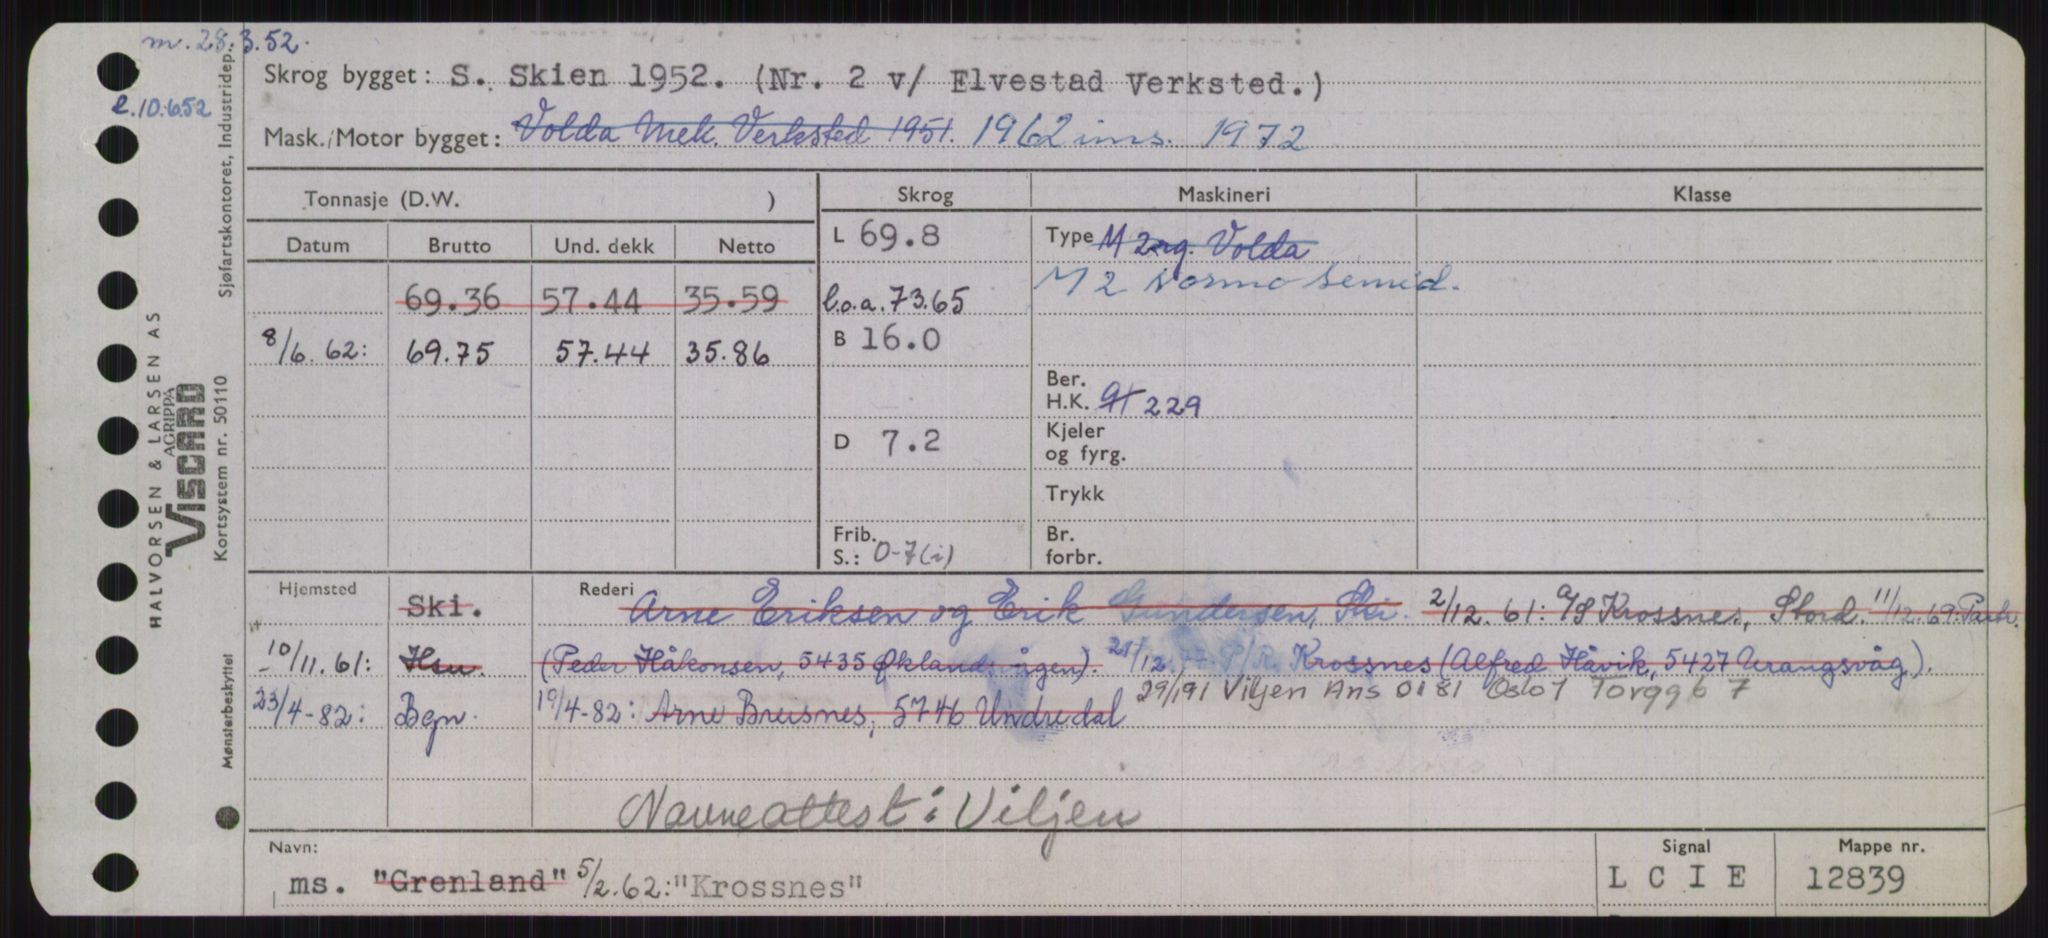 m. 28.3.52.
e. 10.6.52
Skrog bygget: S. Skien 1952. (Nr. 2 v/ Elvestad Verksted.)
Mask./Motor bygget: Volda Mek. Verksted 1951. 1962 ims. 1972
Tonnasje (D.W. ) Skrog Maskineri Klasse
Datum Brutto Und. dekk Netto L 69.8 Type M 2 Volda
69.36 57.44 35.59 l.o.a. 73.65 M 2 semid.
8/6. 62: 69.75 57.44 35.86 B 16.0
Ber.
H.K. 229
D 7.2 Kjeler
og fyrg.
Trykk
Frib. Br.
S.: 0-7(i) forbr.
Hjemsted Ski. Rederi Arne Eriksen og Erik Gundersen, Ski. 2/12. 61: A/S Krossnes, Stord. 11/12. 69: Partr.
10/11. 61: Hsu. (Peder Håkonsen, 5435 Øklandsvågen). 21/12. 77. P/R. Krossnes (Alfred Håvik, 5427 Urangsvåg).
23/4-82: Bgn. 19/4-82: Arne Breisnes, 5746 Undredal 29/1 91 Viljen Ans 0181 Oslo 1 Torggt 7
Navneattest: Viljen
Navn: Signal Mappe nr.
ms. "Grenland" 5/2. 62: "Krossnes" L C I E 12839
HALVORSEN & LARSEN AS
AGRIPPA
VISCARD
Kortsystem nr. 50110 Sjøfartskontoret, Industridep.
Mønsterbeskyttet